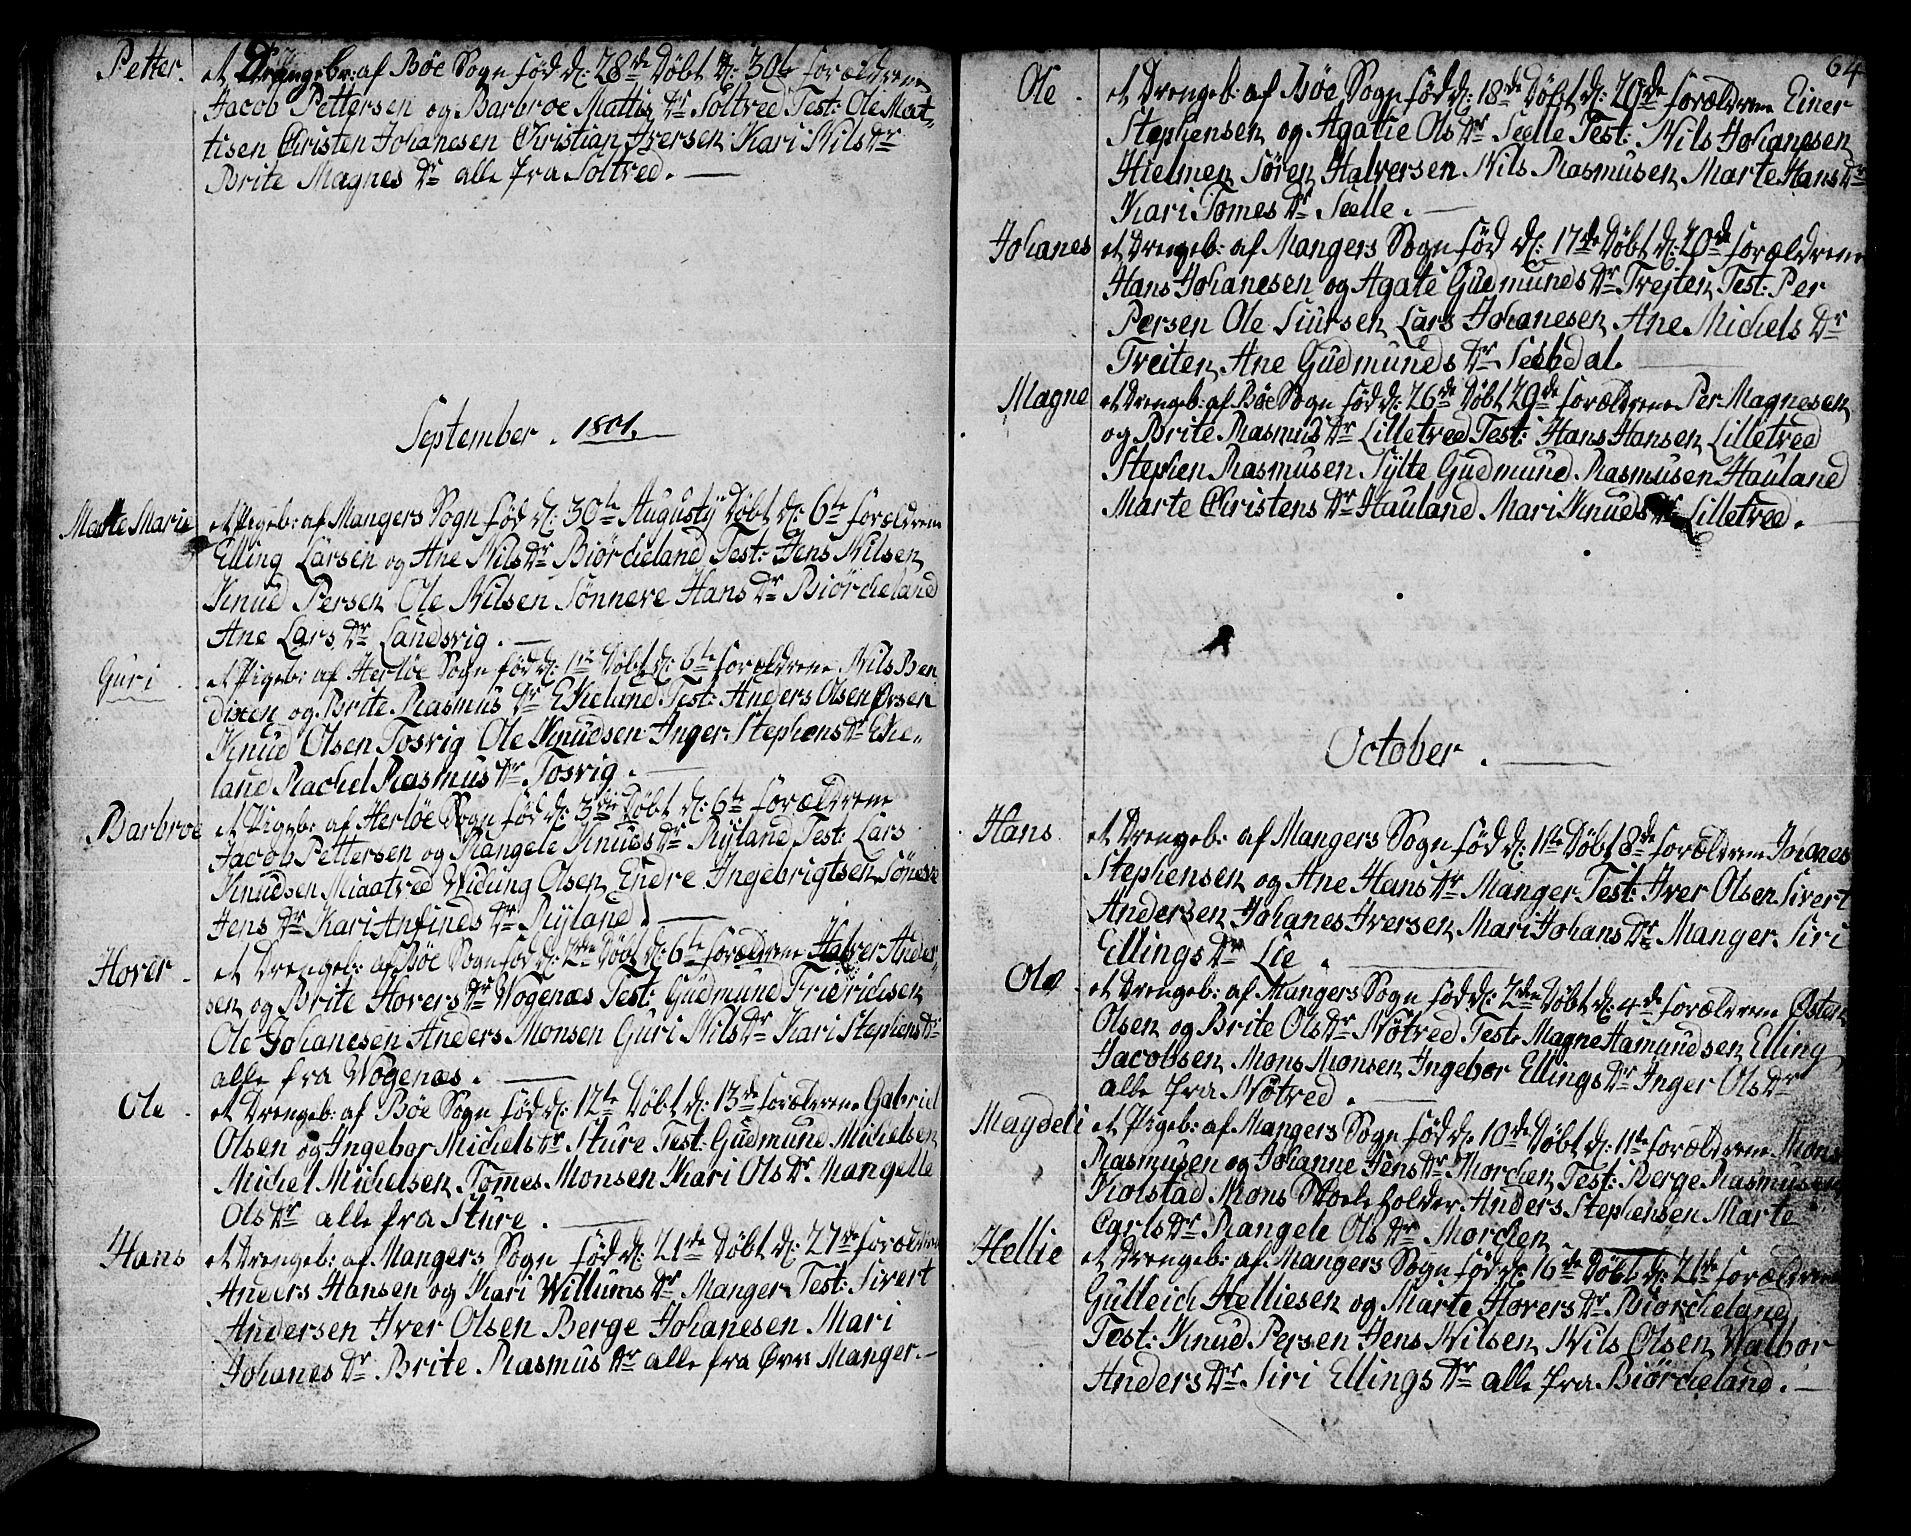 Petter.
et Drengeb: af Böe Sogn föd d: 28de Döbt d: 30te forældrene
Jacob Pettersen og Barbroe Mattis Dr Soltred Test: Ole Mat-
tisen Christen Johanesen Christian Iversen Kari Nils Dr
Brite Magnes Dr alle fra Soltred.
September. 1801.
Marte Marie
et Pigeb: af Mangers Sogn föd d: 30te Augusty Döbt d: 6te forældrene
Elling Larsen og Ane Nils Dr Biörcheland Test: Jens Nilsen
Knud Persen Ole Nilsen Sönneve Hans Dr Biörcheland
Ane Lars Dr Landsvig.
Guri
et Pigeb: af Herlöe Sogn föd d: 1te Döbt d: 6te forældrene Nils Ben
dixen og Brite Rasmus Dr Ekelund Test: Anders Olsen Örsen
Knud Olsen Tosvig Ole Knudsen Inger Stephens Dr Eke-
land Rachel Rasmus Dr Tosvig.
Barbroe
et Pigeb: af Herlöe Sogn föd d: 3die Döbt d: 6te forældrene
Jacob Pettersen og Rangele Knuds Dr Ryland Test: Lars
Knudsen Miaatved Widung Olsen Endre Ingebrigtsen Söneve
Jens Dr Kari Anfinds Dr Ryland
Hover
et Drengeb: af Böe Sogn föd d: 2den Döbt d: 6te forældrene Halver Ander-
sen og Brite Hovers Dr Wogenæs Test: Gudmund Fridrichsen
Ole Johanesen Anders Monsen Guri Nils Dr Kari Stephens Dr
alle fra Wogenæs.
Ole
et Drengeb: af Böe Sogn föd d: 12te Döbt d: 13de forældrene Gabriel
Olsen og Ingebor Michels Dr Sture Test: Gudmund Michelsen
Michel Michelsen Tomes Monsen Kari Ols Dr Mangelle
Ols Dr alle fra Sture.
Hans
et Drengeb: af Mangers Sogn föd d: 21de Döbt d: 27de forældrene
Anders Hansen og Kari Willums Dr Manger Test: Sivert
Andersen Iver Olsen Berge Johanesen Mari
Johanes Dr Brite Rasmus Dr alle fra Övre Manger.
64
Ole
et Drengeb: af Böe Sogn föd d: 18de Döbt d: 20de forældrene Einer
Stephensen og Agatie Ols Dr Seelle Test: Nils Johanesen
Hielmen Sören Halversen Nils Rasmusen Marte Hans Dr
Kari Tomes Dr Seelle.
Johanes
et Drengeb: af Mangers Sogn föd d: 17de Döbt d: 20de forældrene
Hans Johanesen og Agate Gudmunds Dr Treiten Test: Per
Persen Ole Siursen Lars Johanesen Ane Michels Dr
Treiten Ane Gudmunds Dr Seebdal.
Magne
et Drengeb: af Böe Sogn föd d: 26de Döbt 29de forældrene Per Magnesen
og Brite Rasmus Dr Lilletved Test: Hans Hansen Lilletved
Stephen Rasmusen Sylte Gudmund Rasmusen Hauland
Marte Christens Dr Hauland Mari Knuds Dr Lilletved.
October.
Hans
et Drengeb: af Mangers Sogn föd d: 1te Döbt 8de forældrene Johanes
Stephensen og Ane Hans Dr Manger Test: Iver Olsen Sivert
Andersen Johanes Iversen Mari Johans Dr Manger Siri
Ellings Dr Lie.
Ole
et Drengeb: af Mangers Sogn föd d: 2den Döbt d: 4de forældrene Östen
Olsen og Brite Ols Dr Nötved Test: Magne Hamundsen Elling
Jacobsen Mons Monsen Ingebor Ellings Dr Inger Ols Dr
alle fra Nötved.
Magdeli
et Pigeb: af Mangers Sogn föd d: 10de Döbt d: 11te forældrene Mons
Rasmusen og Johanne Jens Dr Morchen Test: Berge Rasmusen
Kolstad Mons Skoeleholder Anders Stephensen Marte
Carls Dr Rangele Ols Dr Morchen
Hellie
et Drengeb: af Mangers Sogn föd d: 16de Döbt d: 21de forældrene
Gulleich Helliesen og Marte Hovers Dr Biörcheland
Test: Knud Persen Jens Nilsen Nils Olsen Walbor
Anders Dr Siri Ellings Dr alle fra Biörcheland.